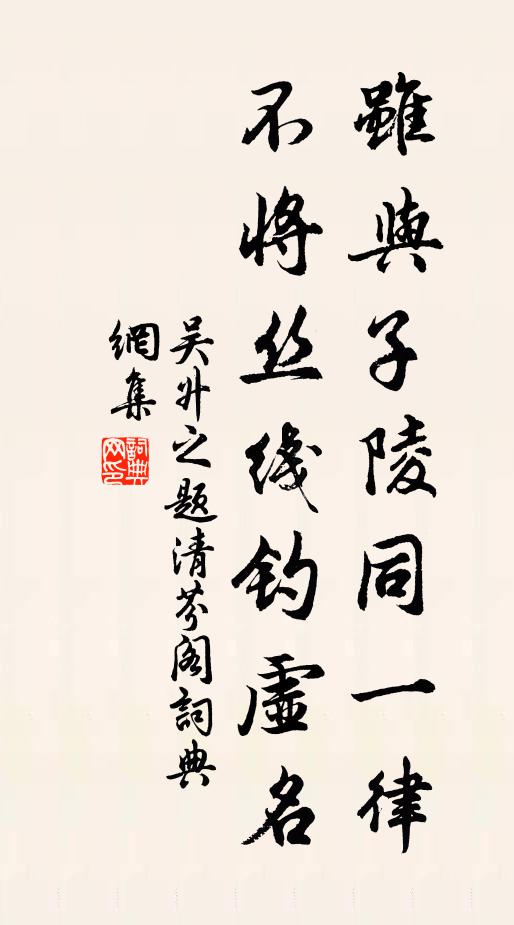 雖與子陵同一律
不將丝线钓虛名
吴升之题清芬阁詞典
網集
詞典网印